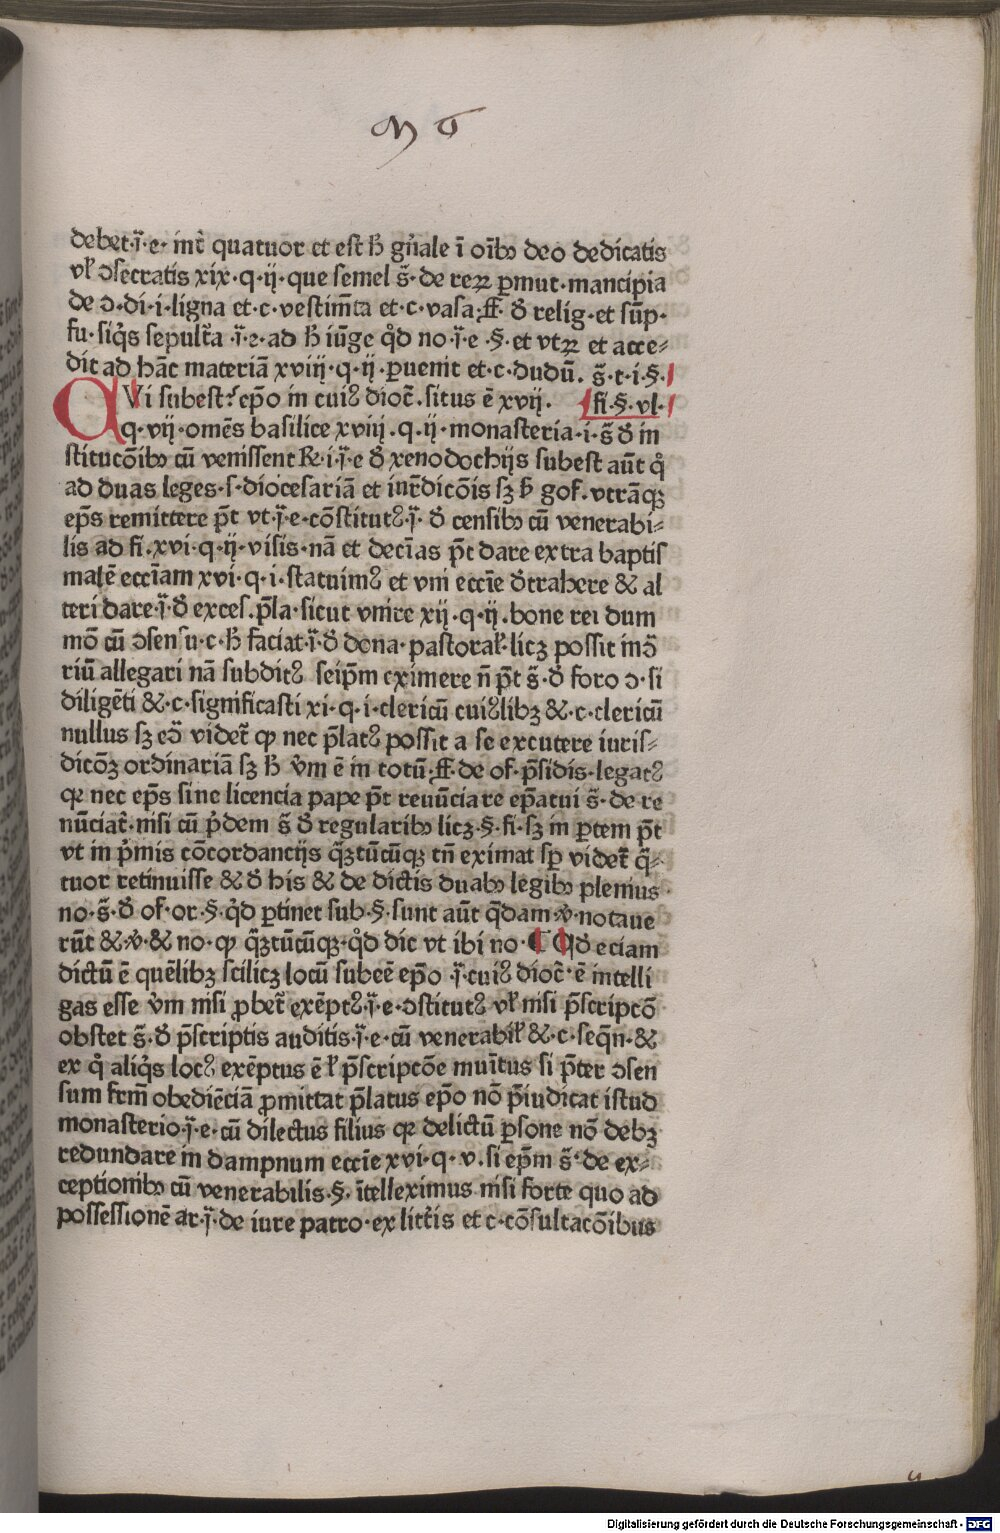 debet·ī·e· int̄ quatuor et est ħ gn̄ale ī oībꝫ deo dedicatis
vl̓ ↄsecratis xix·q·ij·que semel s̄·de reꝝ ꝑmut·mancipia
de ↄ·di·i·ligna et·c·vestim̄ta et·c·vasa·ff· ꝺ̄ relig·et sūp·
fu·siq̇s sepult̄a ·ī·e·ad ħ iūge qȯd no·ī·e·§·et vtꝝ et acce-
dit ad hāc materiā xviij·q·ij·ꝑuenit et·c·dudū. s̄·t·i·§·
QVi subest? ep̄o in cuiꝰ dioc̄·situs ē xvij. fi·§·vl·
q·vij·omēs basilice xviij.q·ij·monasteria·i·s̄ ꝺ̄ in
stitucōibꝫ cū venissent R̄·i·ī·e ꝺ̄ xenodochijs subest aūt qȯ
ad duas leges·s·diocesariā et iur̄dicōis sꝫ ħ gof·vtrāqꝫ
ep̄s remittere p̄t vt·ī·e·cōstitutꝰ·ī· ꝺ̄ censibꝫ cū venerabi-
lis ad fi·xvi·q·ij·visis·nā et decīas p̄t dare extra baptis
malē eccīam xvi·q·i·statuimꝰ et vni eccīe ꝺ̄trahere & al
teri dare·ī·ꝺ̄ exces.p̄la·sicut vnire xij·q·ij·bone rei dum
mō cū ↄsensu·c·ħ faciat·ī·ꝺ̄ dona·pastoral̓·licꝫ possit inↄ̄
riū allegari nā subditꝰ seip̄m eximere n̄ p̄t s̄·ꝺ̄ foro ↄ·si
diligēti &·c·significasti xi·q·i·clericū cuiꝰlibꝫ &·c·clericū
nullus sꝫ eↄ̄ videt̄ ꝙ nec p̄latꝰ possit a se excutere iuris-
dicōꝫ ordinariā sꝫ ħ v̄m ē in totū·ff·de of·p̄sidis·legatꝰ
ꝙ nec ep̄s sine licencia pape p̄t renūciare ep̄atui s̄·de re
nūciat̄·nisi cū p̓dem s̄ ꝺ̄ regularibꝫ licꝫ·§·fi·sꝫ in ꝑtem p̄t
vt in p̓mis cōcordancijs qͣꝫtūcūqꝫ tn̄ eximat sꝑ videt̄ qͣ-
tuor retinuisse & ꝺ̄ his & de dictis duabꝫ legibꝫ plenius
no·s̄·ꝺ̄ of·or·§·qȯd ꝑtinet sub·§·sunt aūt qͣdam·v̄·notaue
rūt &·v̄·& no·ꝙ qͣꝫtūcūqꝫ·qȯd dic vt ibi no· ¶ Qȯd eciam
dictū ē quēlibꝫ scilicꝫ locū subeē ep̄o ·ī·cuiꝰ dioc̄·ē intelli
gas esse v̄m nisi ꝓbet̄ exēptꝰ·ī·e·ↄstitutꝰ vl̓ nisi p̄scripcō
obstet s̄·ꝺ̄ p̄scriptis auditis·ī·e·cū venerabil̓ &·c·seqn̄·&
ex qȯ aliq̇s locꝰ exēptus ē l̓ p̄scripcōe muītus si p̄ter ↄsen
sum frm̄ obediēciā ꝓmittat p̄latus ep̄o nō p̄iudicat istud
monasterio·ī·e·cū dilectus filius ꝙ delictū ꝑsone nō debꝫ
redundare in dampnum eccīe xvi·q·v·si ep̄m s̄·de ex-
ceptionibꝫ cū venerabilis·§·ītelleximus nisi forte quo ad
possessionē ar·ī·de iure patro·ex litt̄is et c·cōsultacōibus
Digitalisierung gefördert durch die Deutsche Forschungsgemeinschaft - DFG